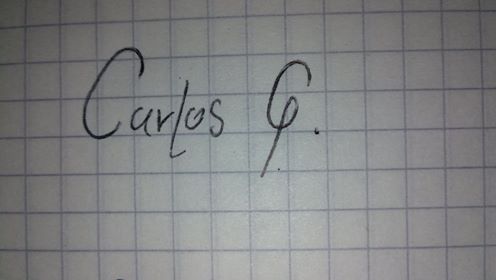 Carlos G.